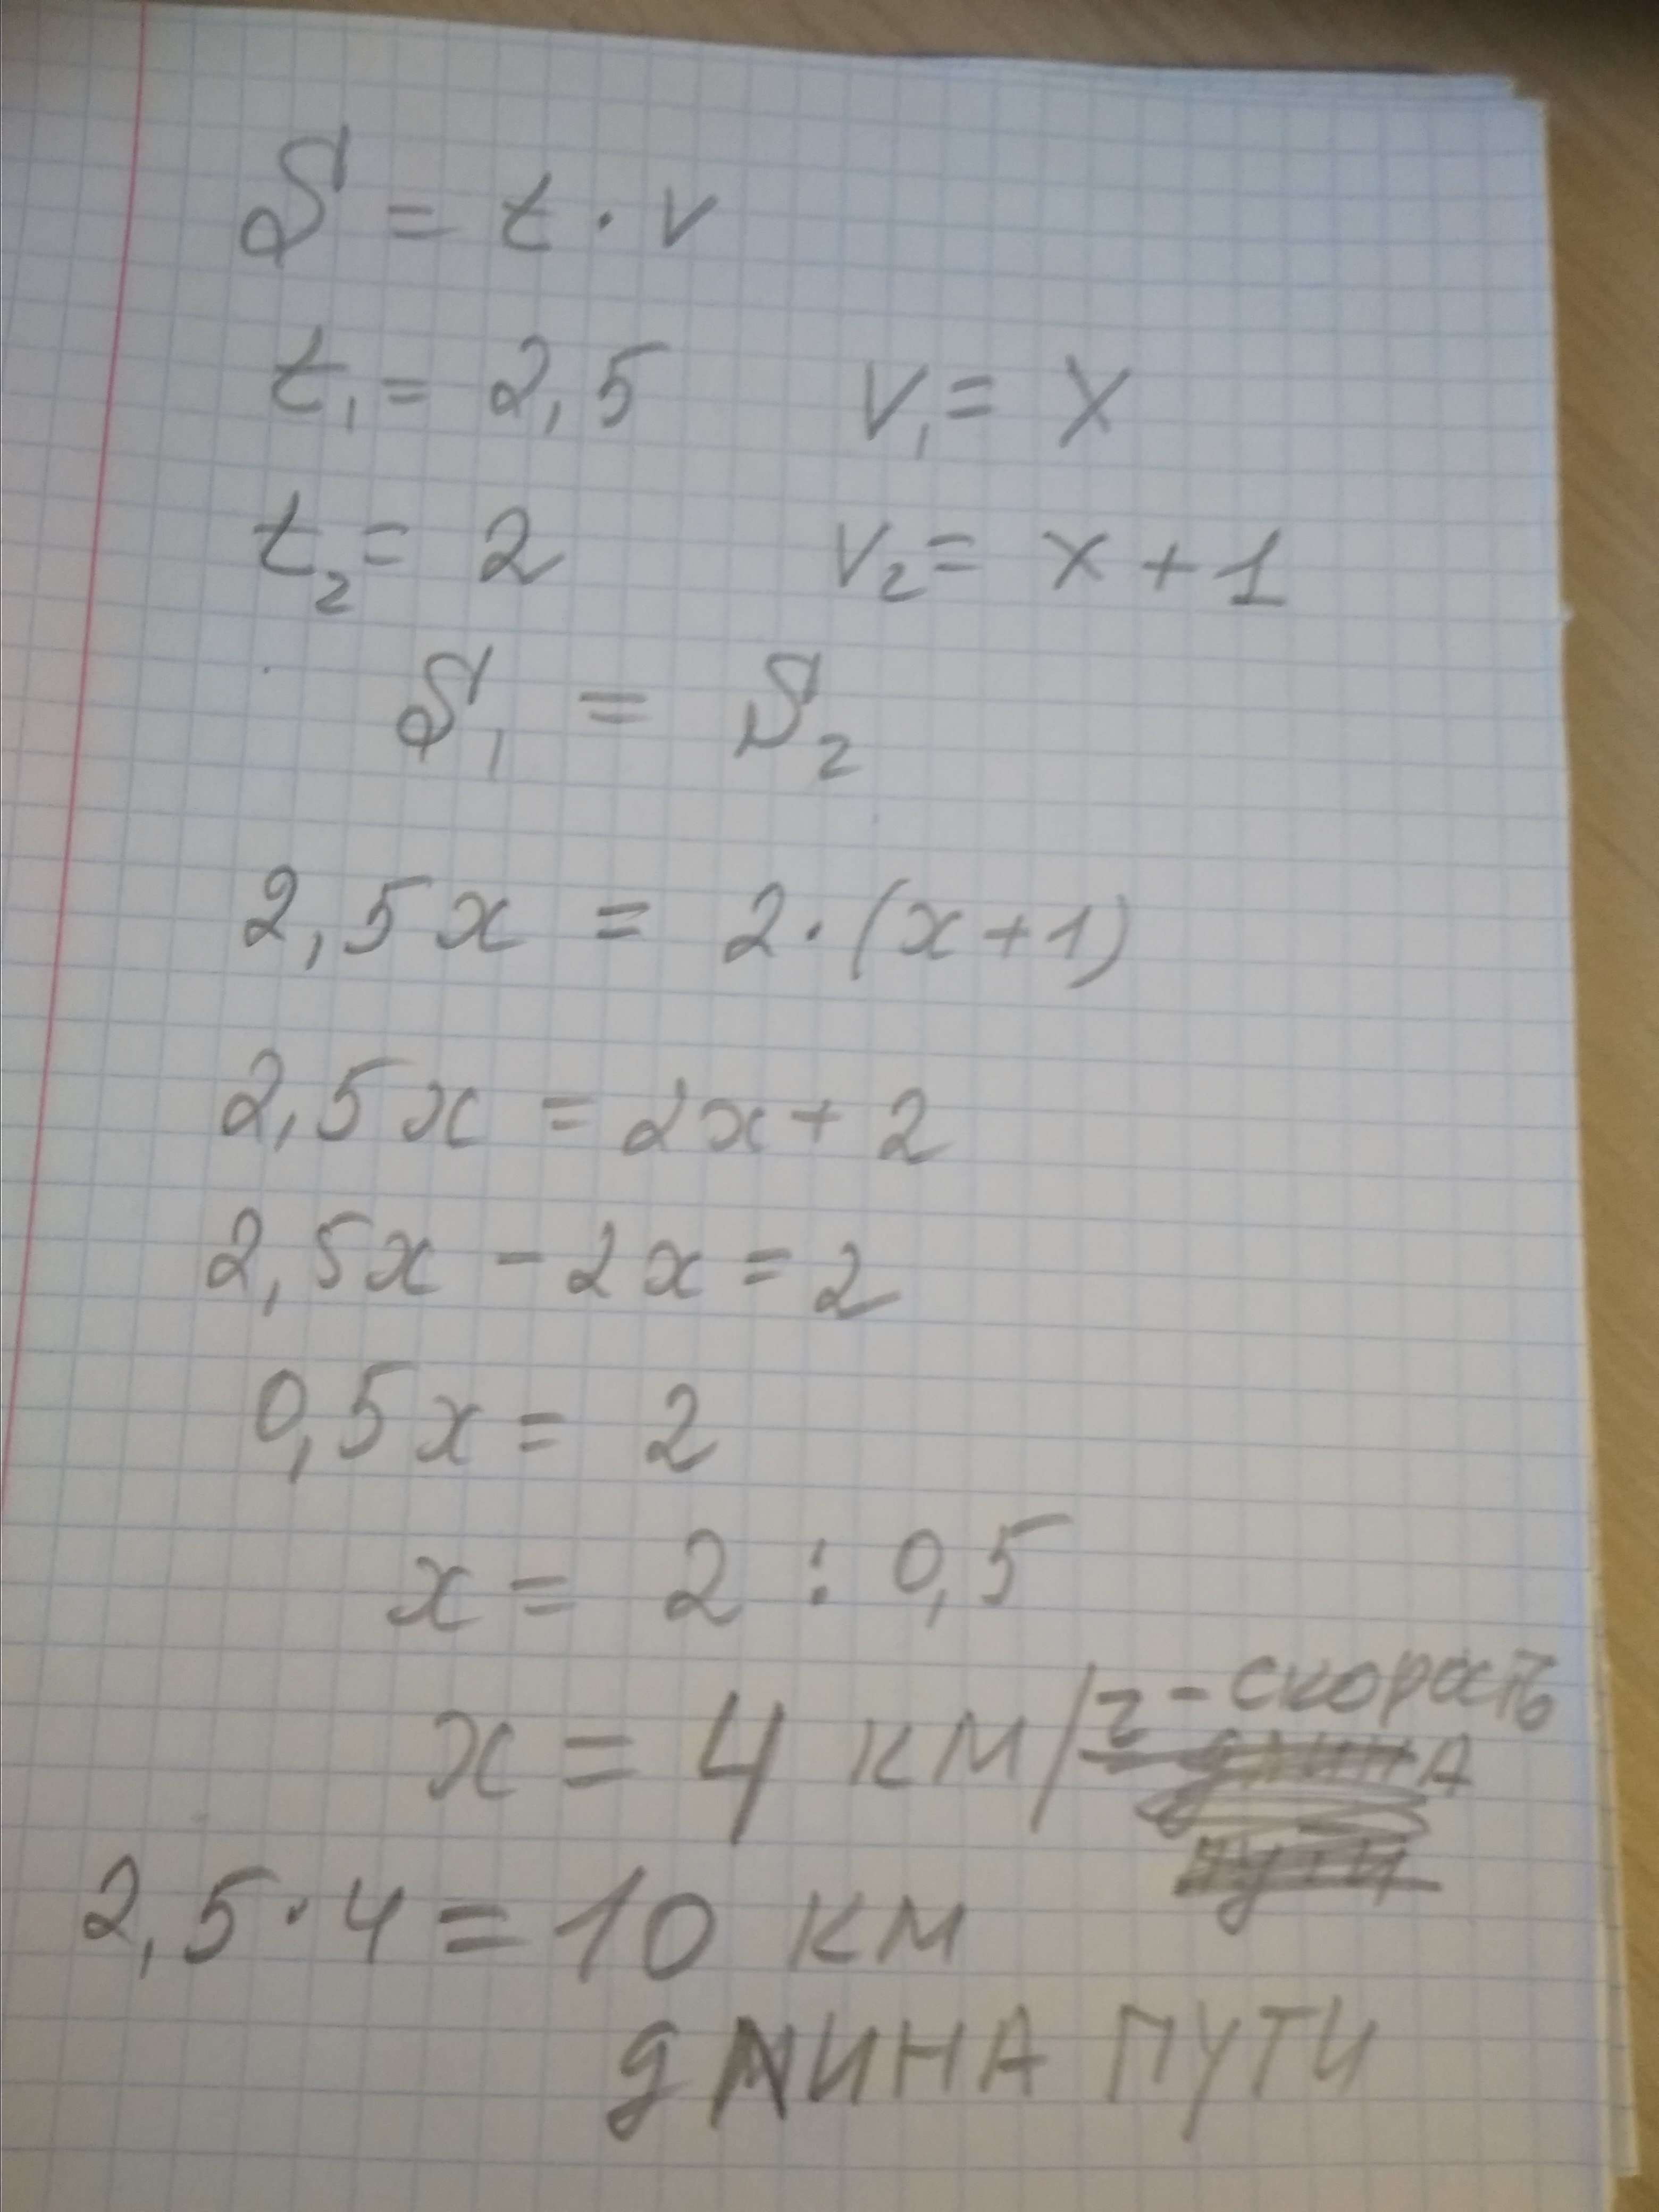 S = t · v
t₁ = 2,5 v₁ = x
t₂ = 2 v₂ = x + 1
S₁ = S₂
2,5x = 2 · (x+1)
2,5x = 2x + 2
2,5x - 2x = 2
0,5x = 2
x = 2 : 0,5
x = 4 км/ч - скорость
длина
пути
2,5 · 4 = 10 км
длина пути